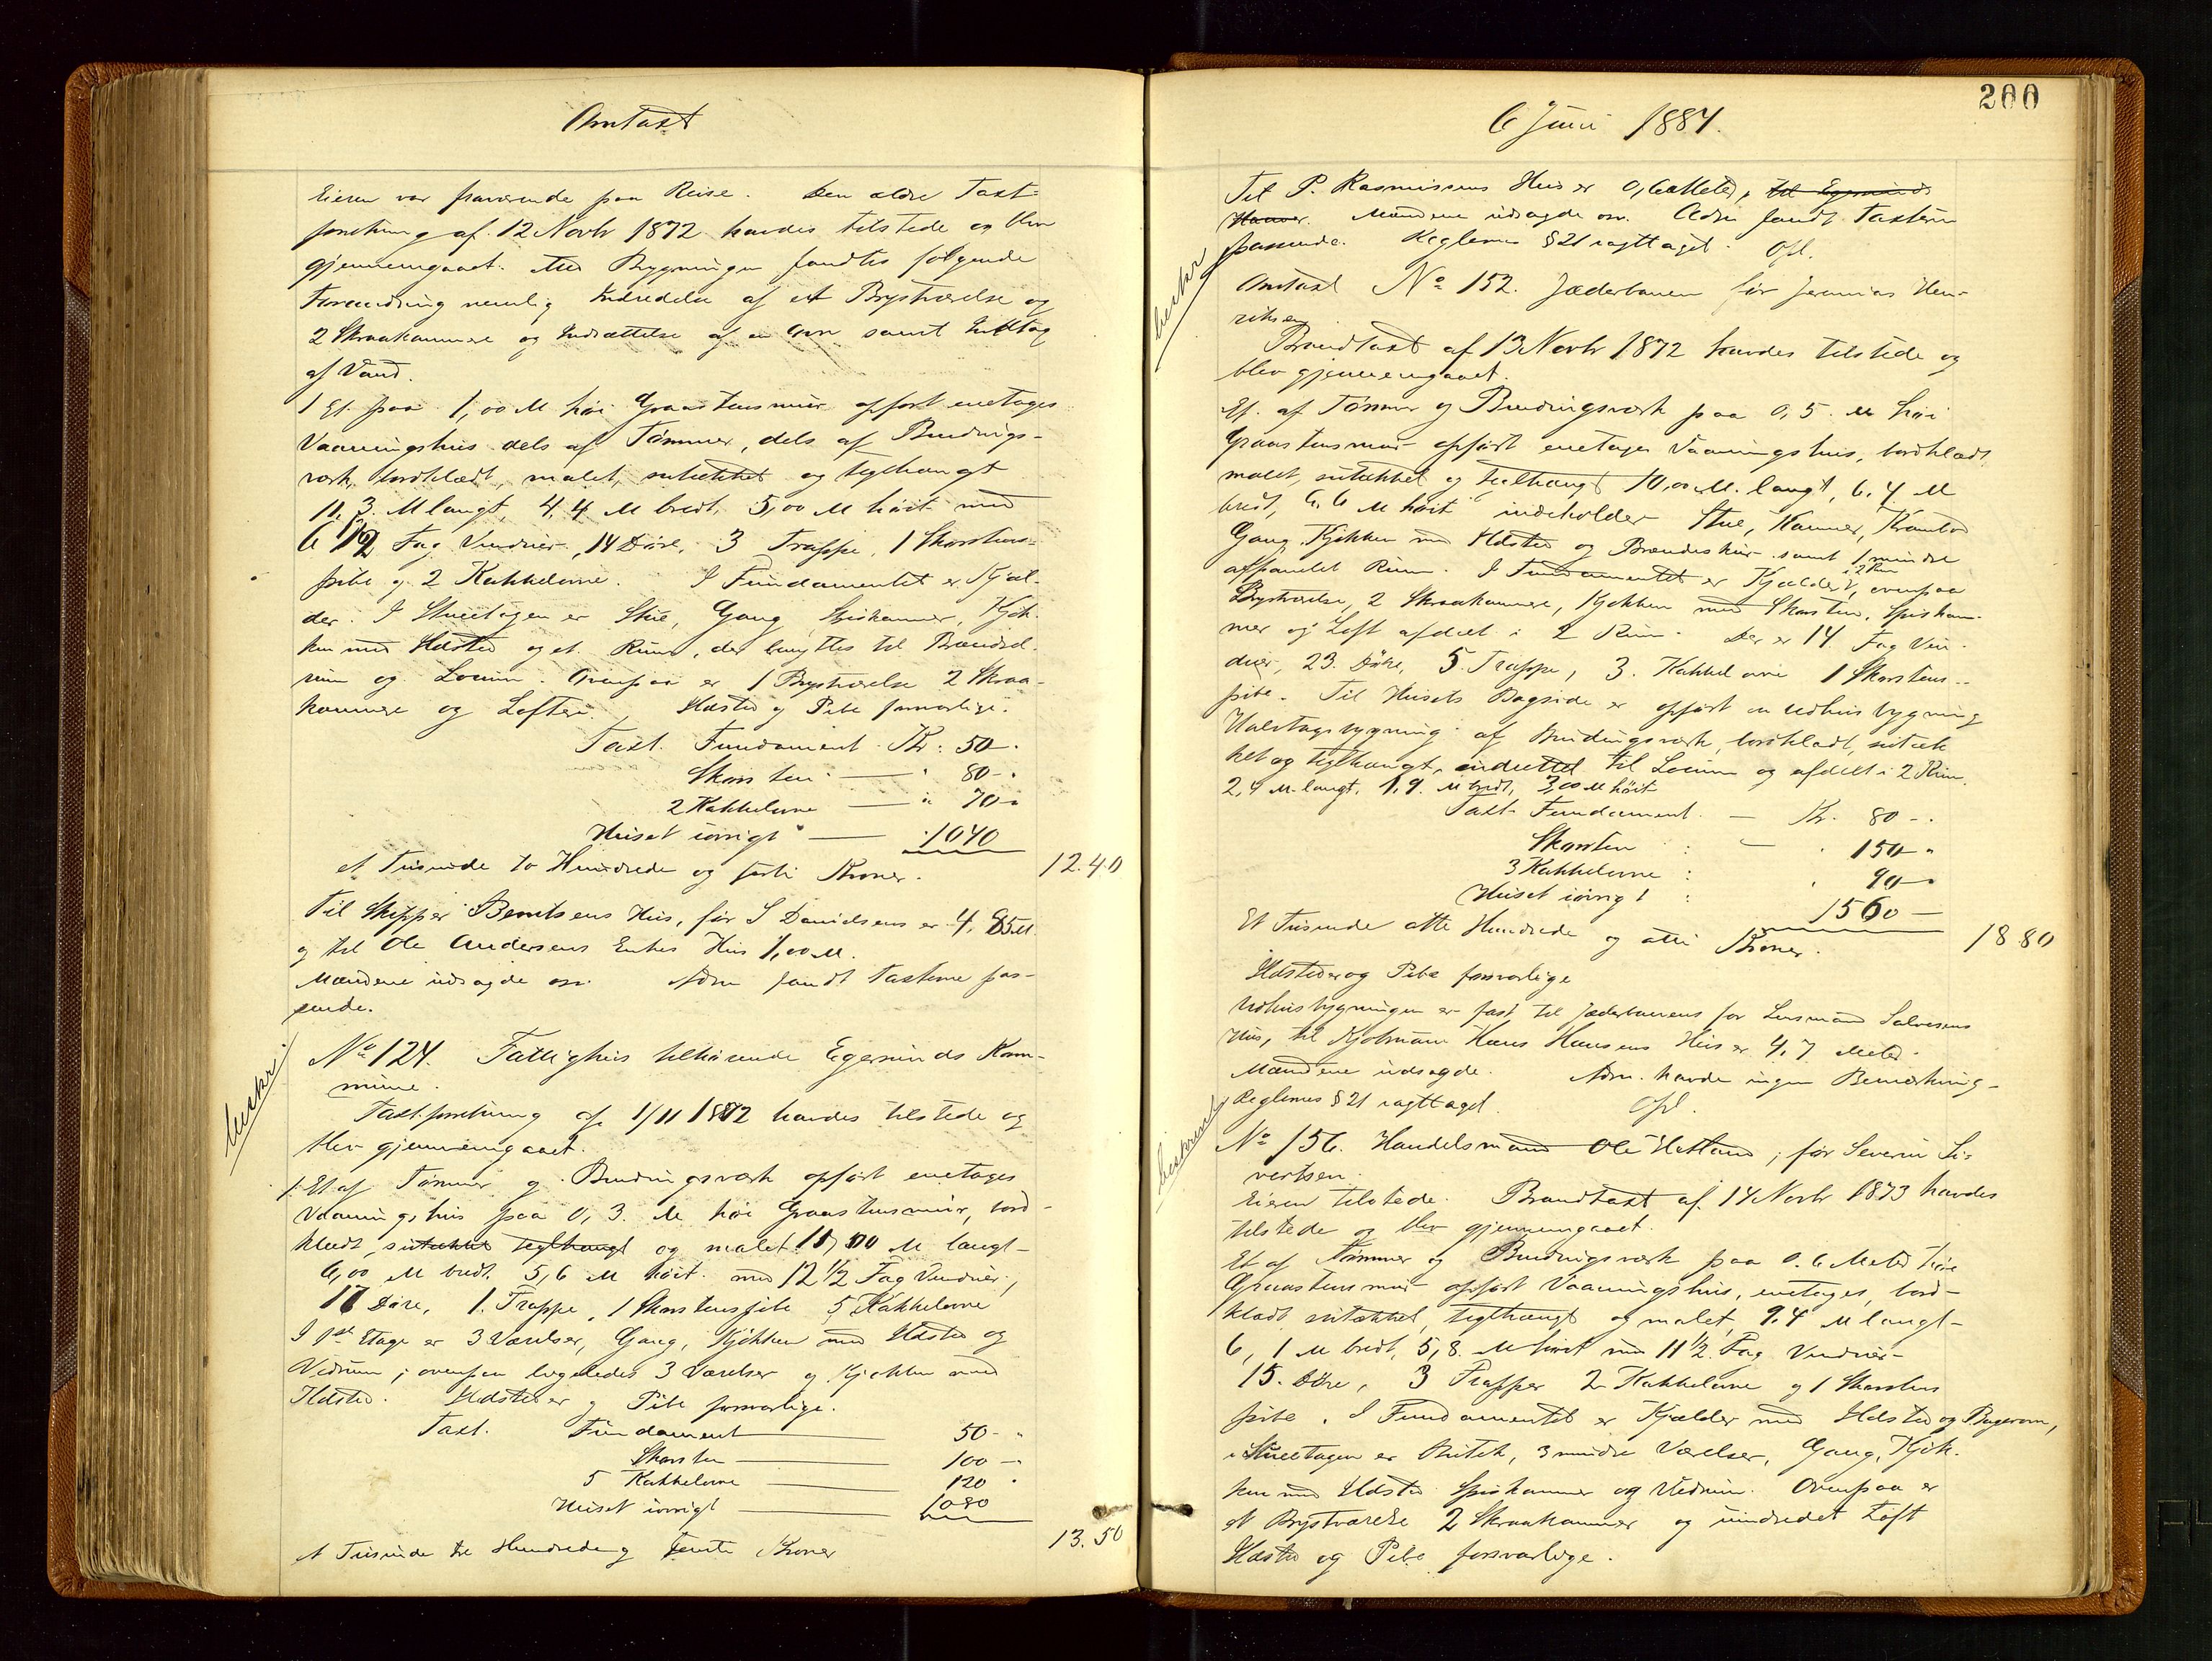 Omtaxt
Eieren var fraværende paa Reise. Den ældre Taxt-
forretning af 12 Novbr 1872 havdes tilstede og blev
gjennemgaaet. Med Bygningen fandtes følgende
Forandring nemlig Indredelse af et Brystværelse og
2 Skraakammere og Indsættelse af en Ovn samt Indtag
af Vand.
1 Et paa 1,00 M høi Graastensmur opført enetages
Vaaningshus dels af Tømmer, dels af Bindings-
værk, bordklædt, malet, sutækket og teglhængt
11,3. M langt, 4,4 M bredt, 5,00 M høit med
6 1/2 Fag Vinduer, 14 Døre, 3 Trappe, 1 Skorstens-
pibe og 2 Kakkelovne. I Fundamentet er Kjæl-
der. I Stueetagen er Stue, Gang Spiskammer, Kjøk-
ken med Ildsted og et Rum, der benyttes til Brændsel-
rum og Locum. Ovenpaa er 1 Brystværelse 2 Skraa-
kammere og Lofter. Ildsted og Pibe forsvarlige.
Taxt. Fundament Kr: 50 -
Skorsten — " 80 - "
2 Kakkelovne — " 70 - "
Huset iøvrigt — 1040
et Tusinde to Hundrede og førti Kroner. 12.40
Til Skipper Berntsens Hus, før S Davidsens er 4,85 M.
og til Ole Andersens Enkes Hus 1,00 M.
Mændene udsagde osv. Adm fandt Taxterne pas-
sende.
beskr.
No 124. Fattighus tilhørende Egersunds Kom-
mune.
Taxtforretning af 1/11 1872 havdes tilstede og
blev gjennemgaaet.
1. Et af Tømmer og Bindingsværk opført enetages
Vaaningshus paa 0,3. M høi Graastensmur, bord-
klædt, sutækket teglhængt og malet 11,00 M langt-
6,00 M bredt, 5,6 M høit med 12 1/2 Fag Vinduer,
17 Døre, 1. Trappe, 1 Skorstenspibe 5 Kakkelovne
I 1ste Etage er 3 Værelser, Gang, Kjøkken med Ildsted og
Vedrum; ovenpaa ligeledes 3 Værelser og Kjøkken med
Ildsted. Ildsteder og Pibe forsvarlige.
Taxt. Fundament — 50 - "
Skorsten — 100 —
5 Kakkelovne — 120 "
Huset iøvrigt — 1080
et Tusinde tre Hundrede og femti Kroner 13.50
200
6 Juni 1884.
Til P. Rasmussens Hus er 0,6 Meter, til Egersunds
Havner. Mændene udsagde osv. Adm fandt Taxterne
passende. Reglernes § 21 iagttaget. Opl.
beskr
Omtaxt No 152. Jæderbanen før Jeremias Hen-
riksen
Brandtaxt af 13 Novbr 1872 havdes tilstede og
blev gjennemgaaet.
Et af Tømmer og Bindingsværk paa 0,5. M høi
Graastensmur opført enetages Vaaningshus, bordklædt,
malet, sutækket og teglhængt 10,00 M. langt, 6,4 M
bredt, 6,6 M høit indeholder Stue, Kammer, Krambod
Gang, Kjøkken med Ildsted og Brændeskur samt 1 mindre
afpanelet Rum. I Fundamentet er Kjælder, i 2 Rum ovenpaa
Brystværelse, 2 Skraakammere, Kjøkken med Skorsten, Spiskam-
mer og Loft afdelt i 2 Rum. Der er 14 Fag Vin-
duer, 23. Døre, 5 Trappe, 3. Kakkelovne 1 Skorstens-
pibe. Til Husets Bagside er opført en Udhusbygning
Halvtagsbygning af Bindingsværk, bordklædt, sutæk-
ket og teglhængt, indrettet til Locum og afdelt i 2 Rum.
2,4 M. langt, 1,9. M bredt, 3,00 M høit
Taxt Fundament — Kr. 80 - "
Skorsten : — " 150 - "
3 Kakkelovne : " 90 - "
Huset iøvrigt : 1560 —
Et Tusinde otte Hundrede og otti Kroner. 18.80
Ildsteder og Pibe forsvarlige
Udhusbygningen er fast til Jæderbanens for Lensmand Salvesens
Hus, til Kjøbmand Hans Hansens Hus er 4,7 Meter.
Mændene udsagde. Adm. havde ingen Bemærkning-
Reglernes § 21 iagttaget. Opl.
beskrevet
No 156. Handelsmand Ole Hetland, før Severin Si-
vertsen.
Eieren tilstede. Brandtaxt af 14 Novbr 1873 havdes
tilstede og blev gjennemgaaet.
Et af Tømmer og Bindingsværk paa 0.6 Meter høi
Graastensmur opført Vaaningshus, enetages, bord-
klædt sutækket, teglhængt og malet, 9,4 M langt-
6,1 M bredt, 5,8. M høit med 11 1/2 Fag Vinduer-
15. Døre, 3 Trapper 2 Kakkelovne og 1 Skorstens
pibe. I Fundamentet er Kjælder med Ildsted og Bagerovn,
i Stueetagen er Butik, 3 mindre Værelser, Gang, Kjøk-
ken med Ildsted Spiskammer og Vedrum. Ovenpaa er
et Brystværelse 2 Skraakammer og uindredet Loft
Ildsted og Pibe forsvarlige.